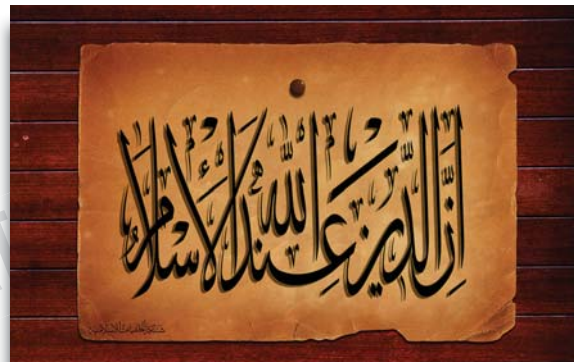 إن الدين عند الله الإسلام